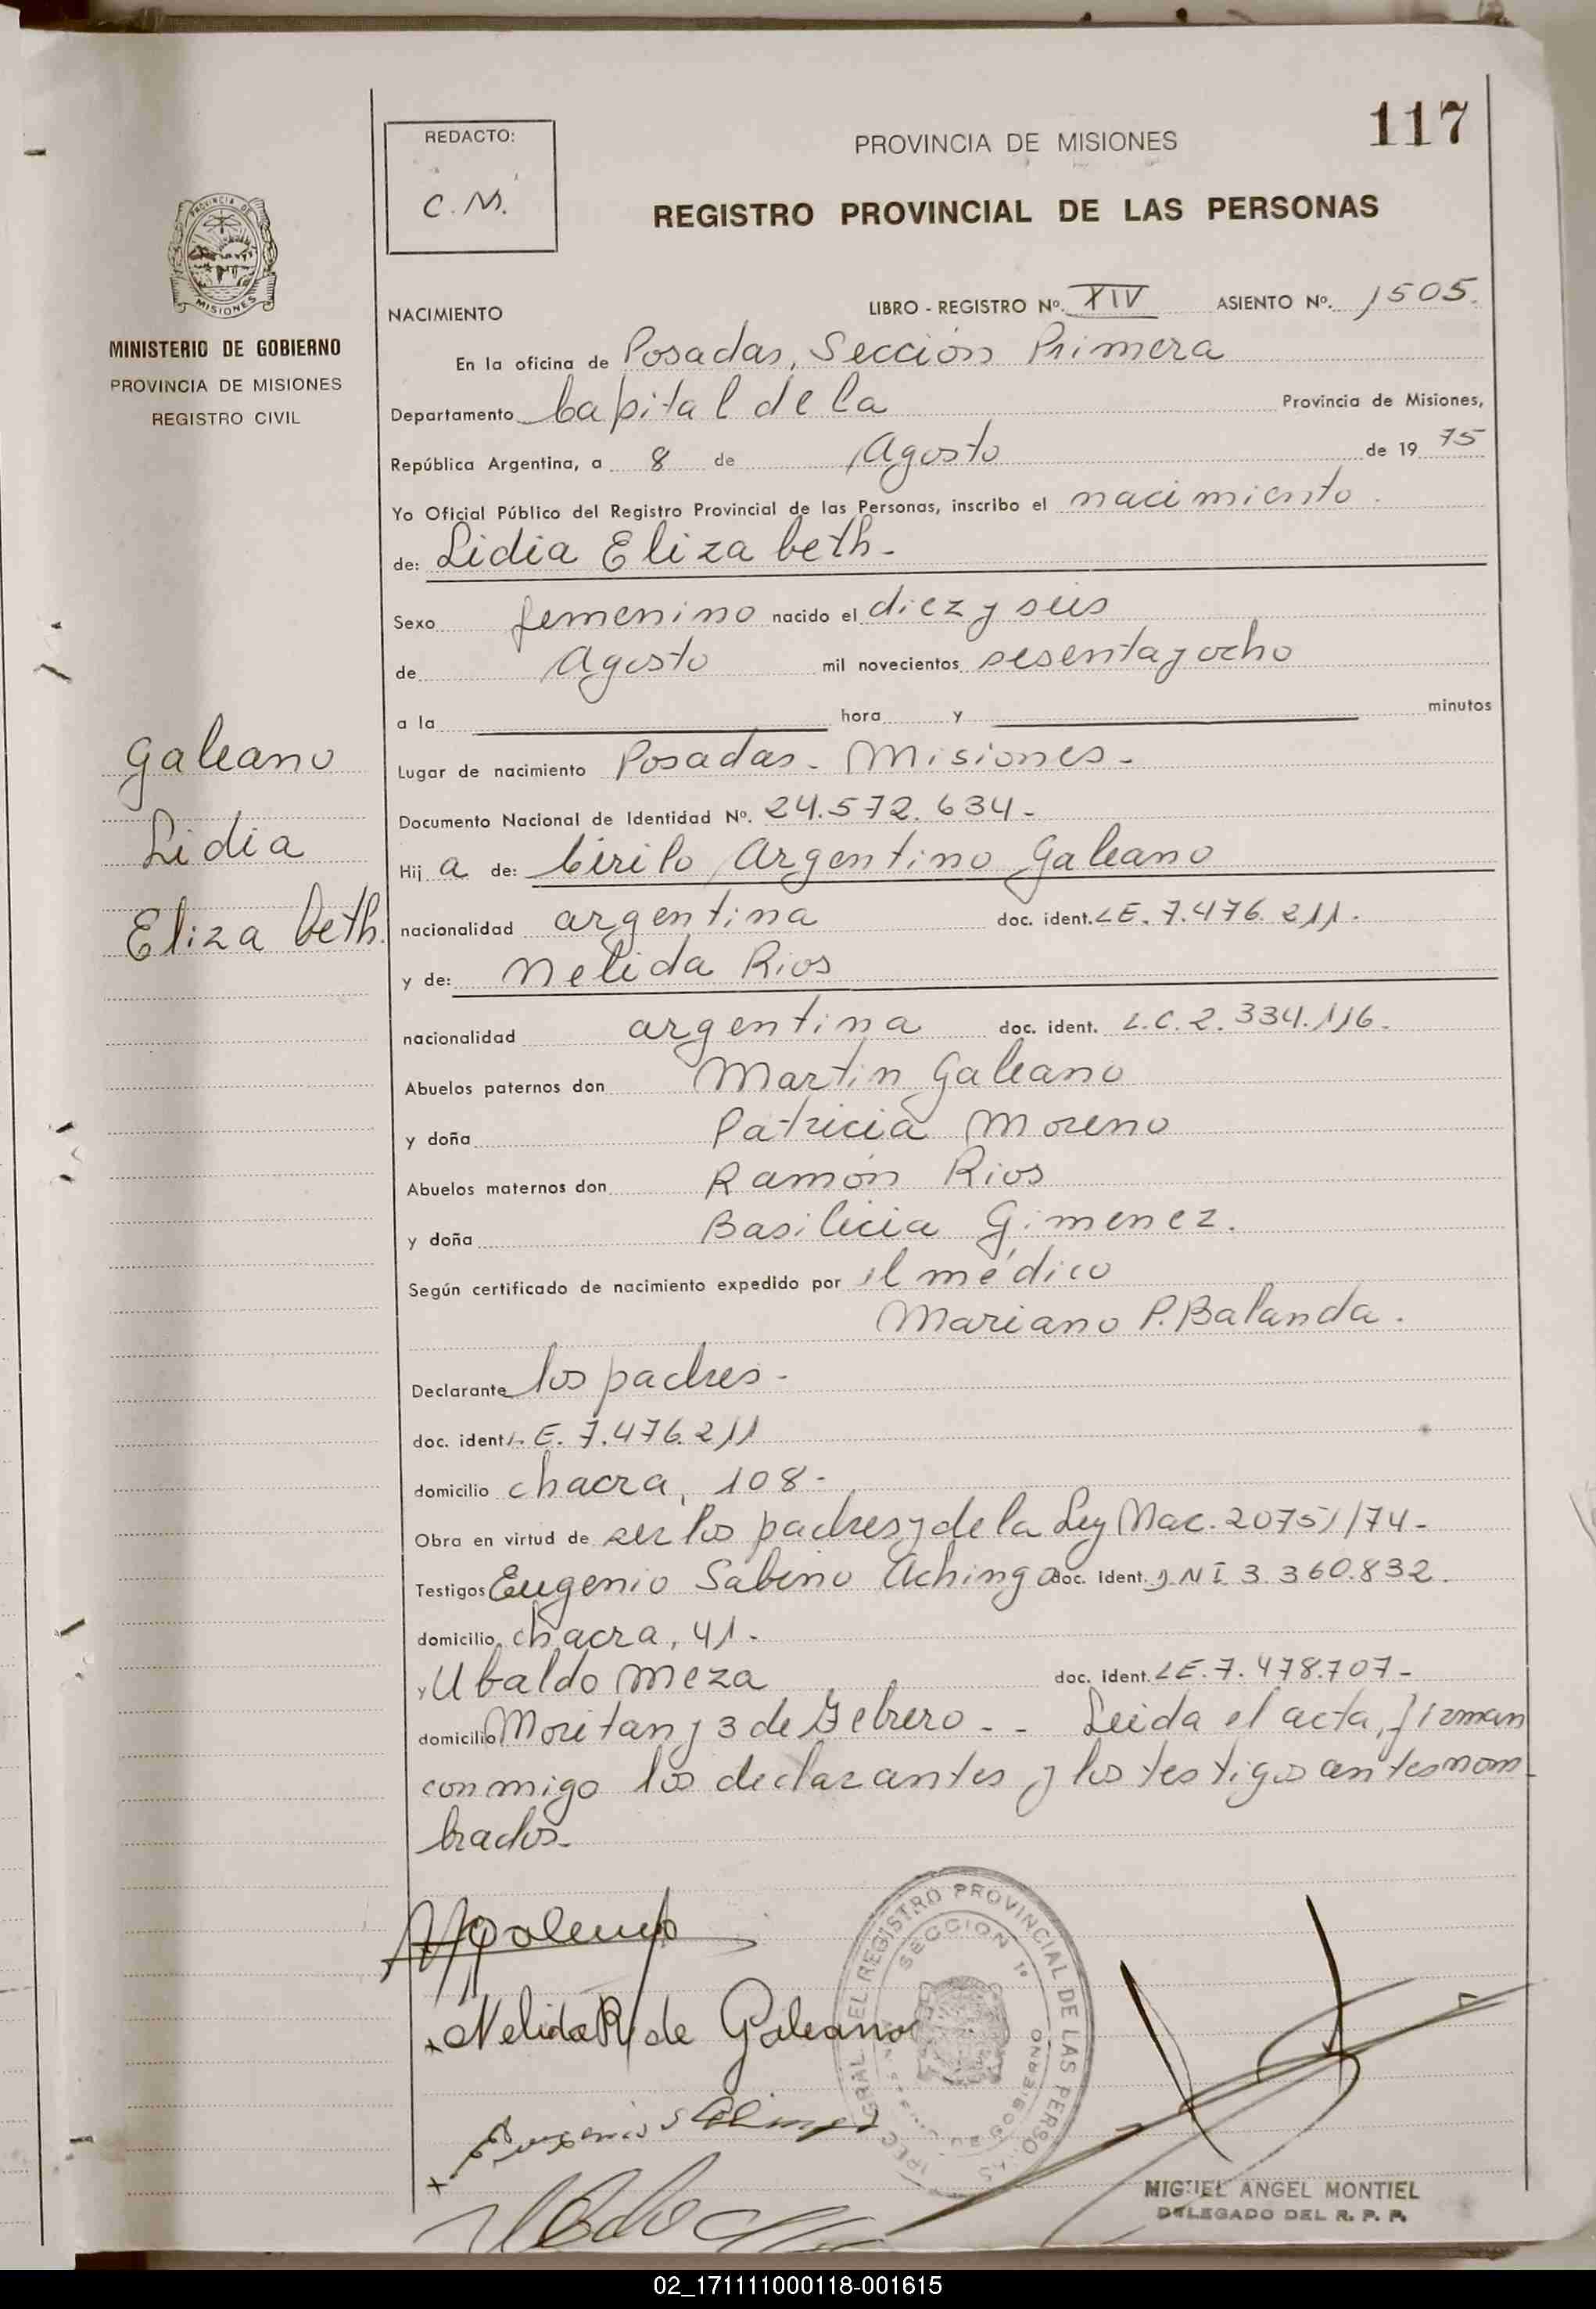 117
REDACTO:
C.M.
PROVINCIA DE MISIONES
REGISTRO PROVINCIAL DE LAS PERSONAS
PROVINCIA DE
MISIONES
MINISTERIO DE GOBIERNO
PROVINCIA DE MISIONES
REGISTRO CIVIL
NACIMIENTO LIBRO - REGISTRO Nº. XIV ASIENTO Nº. 1505.
En la oficina de Posadas, Sección Primera
Departamento Capital de la Provincia de Misiones,
República Argentina, a 8 de Agosto de 19 75
Yo Oficial Público del Registro Provincial de las Personas, inscribo el nacimiento.
de: Lidia Elizabeth-
Sexo femenino nacido el diez y seis
de Agosto mil novecientos sesenta y ocho
a la hora y minutos
Galeano
Lidia
Elizabeth.
Lugar de nacimiento Posadas - Misiones -
Documento Nacional de Identidad Nº. 24.572.634-
Hij a de: Cirilo Argentino Galeano
nacionalidad argentina doc. ident. L E. 7.476.211.
y de: Nelida Rios
nacionalidad argentina doc. ident. L.C. 2.334.116.
Abuelos paternos don Martin Galeano
y doña Patricia Moreno
Abuelos maternos don Ramón Rios
y doña Basilicia Gimenez.
Según certificado de nacimiento expedido por el médico
Mariano P. Balanda.
Declarante los padres-
doc. ident L. E. 7.476.211
domicilio chacra, 108-
Obra en virtud de ser los padres y de la Ley Nac. 20751/74-
Testigos Eugenio Sabino Achinga doc. ident. D N I 3.360.832.
domicilio chacra, 41-
y Ubaldo Meza doc. ident. L E. 7.478.707-
domicilio Moritan y 3 de Febrero - - Leida el acta, firman
conmigo los declarantes y los testigos antes nom-
brados-
Nelida R. de Galeano
REGISTRO PROVINCIAL DE LAS PERSO
SECCION 1ª
MIGUEL ANGEL MONTIEL
DELEGADO DEL R. P. P.
02_171111000118-001615